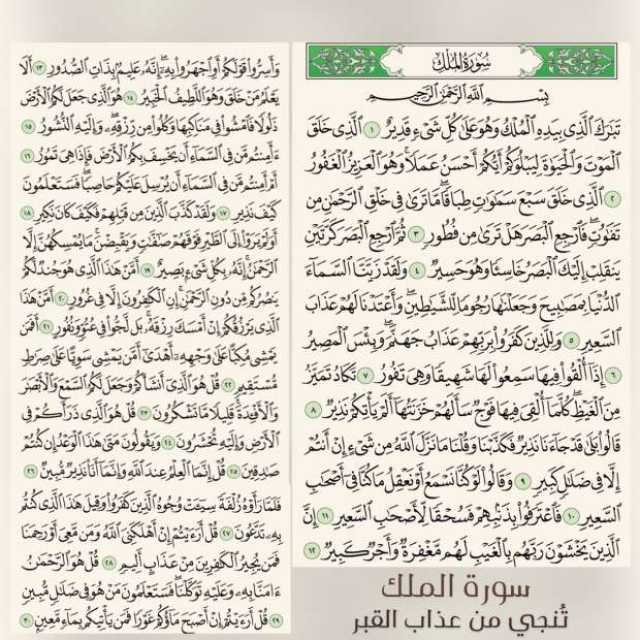 سُورَةُ المُلْكِ
بِسْمِ اللَّهِ الرَّحْمَٰنِ الرَّحِيمِ
تَبَارَكَ الَّذِي بِيَدِهِ الْمُلْكُ وَهُوَ عَلَىٰ كُلِّ شَيْءٍ قَدِيرٌ ١ الَّذِي خَلَقَ
الْمَوْتَ وَالْحَيَاةَ لِيَبْلُوَكُمْ أَيُّكُمْ أَحْسَنُ عَمَلًا وَهُوَ الْعَزِيزُ الْغَفُورُ
٢ الَّذِي خَلَقَ سَبْعَ سَمَاوَاتٍ طِبَاقًا مَّا تَرَىٰ فِي خَلْقِ الرَّحْمَٰنِ مِن
تَفَاوُتٍ فَارْجِعِ الْبَصَرَ هَلْ تَرَىٰ مِن فُطُورٍ ٣ ثُمَّ ارْجِعِ الْبَصَرَ كَرَّتَيْنِ
يَنقَلِبْ إِلَيْكَ الْبَصَرُ خَاسِئًا وَهُوَ حَسِيرٌ ٤ وَلَقَدْ زَيَّنَّا السَّمَاءَ
الدُّنْيَا بِمَصَابِيحَ وَجَعَلْنَاهَا رُجُومًا لِّلشَّيَاطِينِ وَأَعْتَدْنَا لَهُمْ عَذَابَ
السَّعِيرِ ٥ وَلِلَّذِينَ كَفَرُوا بِرَبِّهِمْ عَذَابُ جَهَنَّمَ وَبِئْسَ الْمَصِيرُ
٦ إِذَا أُلْقُوا فِيهَا سَمِعُوا لَهَا شَهِيقًا وَهِيَ تَفُورُ ٧ تَكَادُ تَمَيَّزُ
مِنَ الْغَيْظِ كُلَّمَا أُلْقِيَ فِيهَا فَوْجٌ سَأَلَهُمْ خَزَنَتُهَا أَلَمْ يَأْتِكُمْ نَذِيرٌ ٨
قَالُوا بَلَىٰ قَدْ جَاءَنَا نَذِيرٌ فَكَذَّبْنَا وَقُلْنَا مَا نَزَّلَ اللَّهُ مِن شَيْءٍ إِنْ أَنتُمْ
إِلَّا فِي ضَلَالٍ كَبِيرٍ ٩ وَقَالُوا لَوْ كُنَّا نَسْمَعُ أَوْ نَعْقِلُ مَا كُنَّا فِي أَصْحَابِ
السَّعِيرِ ١٠ فَاعْتَرَفُوا بِذَنبِهِمْ فَسُحْقًا لِّأَصْحَابِ السَّعِيرِ ١١ إِنَّ
الَّذِينَ يَخْشَوْنَ رَبَّهُم بِالْغَيْبِ لَهُم مَّغْفِرَةٌ وَأَجْرٌ كَبِيرٌ ١٢
وَأَسِرُّوا قَوْلَكُمْ أَوِ اجْهَرُوا بِهِ إِنَّهُ عَلِيمٌ بِذَاتِ الصُّدُورِ ١٣ أَلَا
يَعْلَمُ مَنْ خَلَقَ وَهُوَ اللَّطِيفُ الْخَبِيرُ ١٤ هُوَ الَّذِي جَعَلَ لَكُمُ الْأَرْضَ
ذَلُولًا فَامْشُوا فِي مَنَاكِبِهَا وَكُلُوا مِن رِّزْقِهِ وَإِلَيْهِ النُّشُورُ ١٥
ءَأَمِنتُم مَّن فِي السَّمَاءِ أَن يَخْسِفَ بِكُمُ الْأَرْضَ فَإِذَا هِيَ تَمُورُ ١٦
أَمْ أَمِنتُم مَّن فِي السَّمَاءِ أَن يُرْسِلَ عَلَيْكُمْ حَاصِبًا فَسَتَعْلَمُونَ
كَيْفَ نَذِيرِ ١٧ وَلَقَدْ كَذَّبَ الَّذِينَ مِن قَبْلِهِمْ فَكَيْفَ كَانَ نَكِيرِ ١٨
أَوَلَمْ يَرَوْا إِلَى الطَّيْرِ فَوْقَهُمْ صَافَّاتٍ وَيَقْبِضْنَ مَا يُمْسِكُهُنَّ إِلَّا
الرَّحْمَٰنُ إِنَّهُ بِكُلِّ شَيْءٍ بَصِيرٌ ١٩ أَمَّنْ هَٰذَا الَّذِي هُوَ جُندٌ لَّكُمْ
يَنصُرُكُم مِّن دُونِ الرَّحْمَٰنِ إِنِ الْكَافِرُونَ إِلَّا فِي غُرُورٍ ٢٠ أَمَّنْ هَٰذَا
الَّذِي يَرْزُقُكُمْ إِنْ أَمْسَكَ رِزْقَهُ بَل لَّجُّوا فِي عُتُوٍّ وَنُفُورٍ ٢١ أَفَمَن
يَمْشِي مُكِبًّا عَلَىٰ وَجْهِهِ أَهْدَىٰ أَمَّن يَمْشِي سَوِيًّا عَلَىٰ صِرَاطٍ
مُّسْتَقِيمٍ ٢٢ قُلْ هُوَ الَّذِي أَنشَأَكُمْ وَجَعَلَ لَكُمُ السَّمْعَ وَالْأَبْصَارَ
وَالْأَفْئِدَةَ قَلِيلًا مَّا تَشْكُرُونَ ٢٣ قُلْ هُوَ الَّذِي ذَرَأَكُمْ فِي
الْأَرْضِ وَإِلَيْهِ تُحْشَرُونَ ٢٤ وَيَقُولُونَ مَتَىٰ هَٰذَا الْوَعْدُ إِن كُنتُمْ
صَادِقِينَ ٢٥ قُلْ إِنَّمَا الْعِلْمُ عِندَ اللَّهِ وَإِنَّمَا أَنَا نَذِيرٌ مُّبِينٌ ٢٦
فَلَمَّا رَأَوْهُ زُلْفَةً سِيئَتْ وُجُوهُ الَّذِينَ كَفَرُوا وَقِيلَ هَٰذَا الَّذِي كُنتُم
بِهِ تَدَّعُونَ ٢٧ قُلْ أَرَأَيْتُمْ إِنْ أَهْلَكَنِيَ اللَّهُ وَمَن مَّعِيَ أَوْ رَحِمَنَا
فَمَن يُجِيرُ الْكَافِرِينَ مِنْ عَذَابٍ أَلِيمٍ ٢٨ قُلْ هُوَ الرَّحْمَٰنُ
ءَامَنَّا بِهِ وَعَلَيْهِ تَوَكَّلْنَا فَسَتَعْلَمُونَ مَنْ هُوَ فِي ضَلَالٍ مُّبِينٍ
٢٩ قُلْ أَرَأَيْتُمْ إِنْ أَصْبَحَ مَاؤُكُمْ غَوْرًا فَمَن يَأْتِيكُم بِمَاءٍ مَّعِينٍ ٣٠
سورة الملك
تُنجي من عذاب القبر